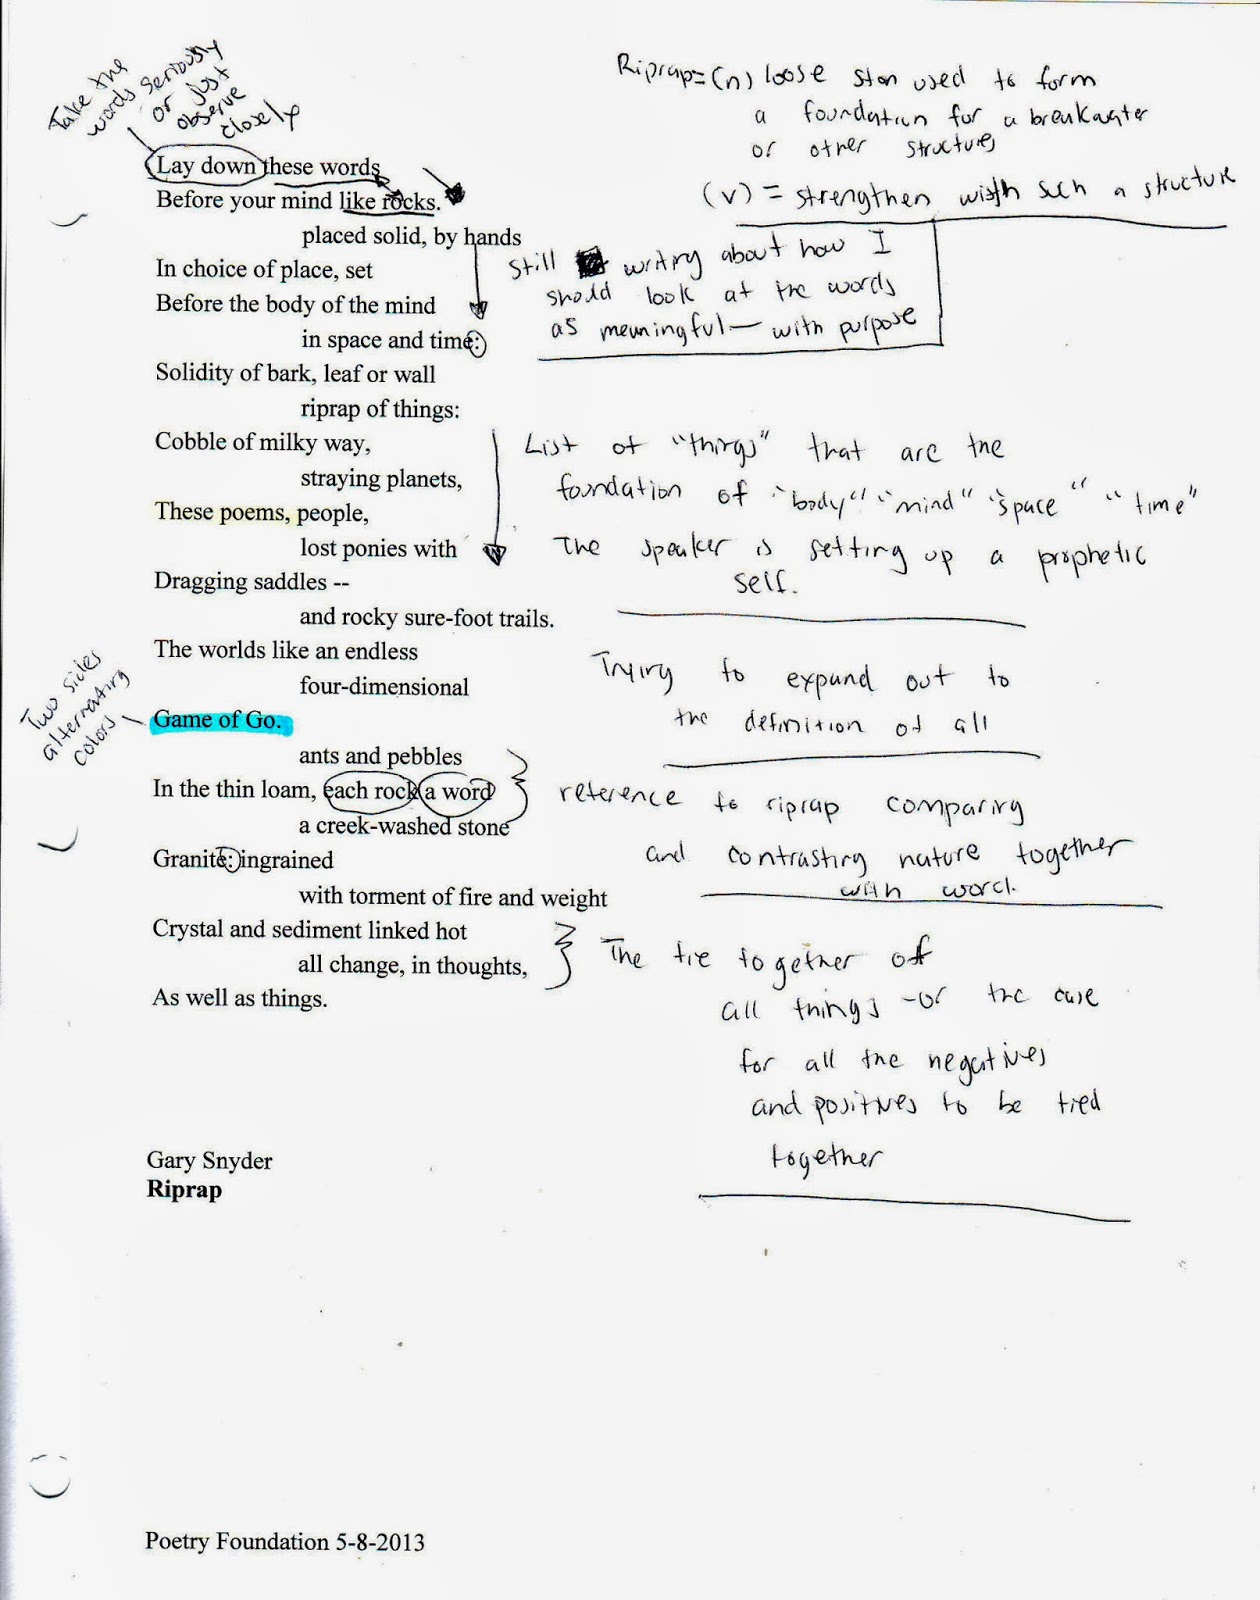 Take the
words seriously
or just
observe
closely
Riprap = (n) loose ston used to form
a foundation for a breakwater
or other structures
(v) = strengthen with such a structure
Lay down these words
Before your mind like rocks.
placed solid, by hands
In choice of place, set
Before the body of the mind
in space and time:
Still writing about how I
should look at the words
as meaningful — with purpose
Solidity of bark, leaf or wall
riprap of things:
Cobble of milky way,
straying planets,
These poems, people,
lost ponies with
Dragging saddles --
and rocky sure-foot trails.
List of "things" that are the
foundation of "body" "mind" "space" "time"
The speaker is setting up a prophetic
self.
The worlds like an endless
four-dimensional
Game of Go.
Two sides
alternating
colors
Trying to expand out to
the definition of all
ants and pebbles
In the thin loam, each rock a word
a creek-washed stone
Granite: ingrained
with torment of fire and weight
reference to riprap comparing
and contrasting nature together
with word.
Crystal and sediment linked hot
all change, in thoughts,
As well as things.
The tie together of
all things - or the case
for all the negatives
and positives to be tied
together
Gary Snyder
Riprap
Poetry Foundation 5-8-2013